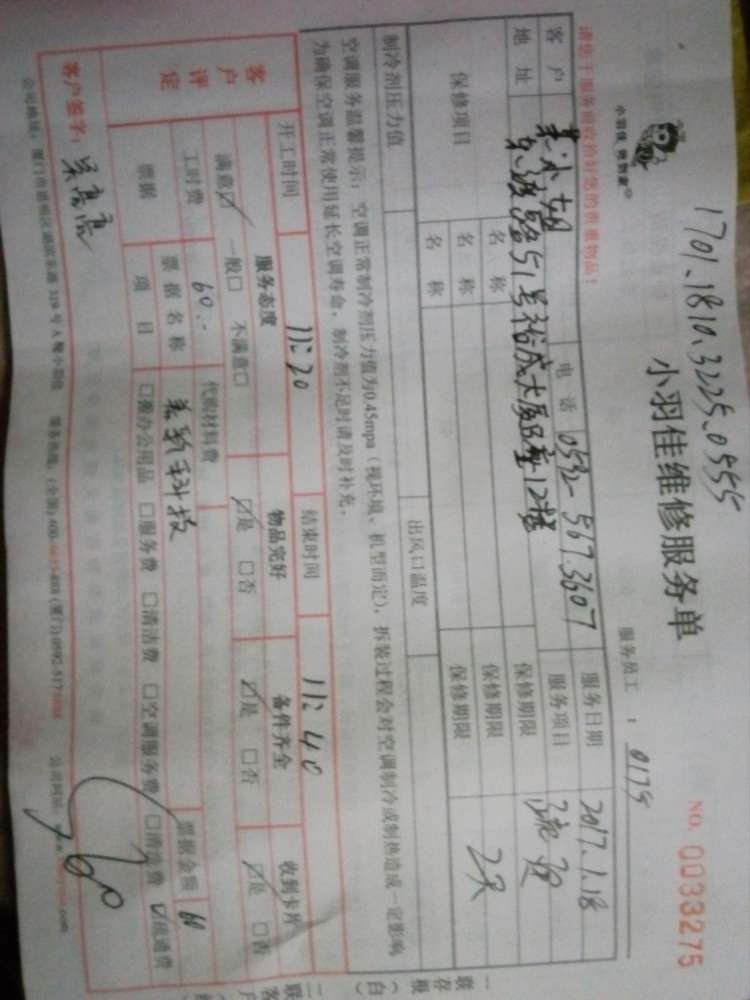 1701.1810.3225.0555
小羽佳维修服务单
NO. 0033275
小羽佳
服务员工：0175
请您于服务前收拾好您的贵重物品！
客户 朱小姐 电话 0592-5673607 服务日期 2017.1.18
地址 51号裕成大厦B座12楼 服务项目 疏通
保修项目 名称 保修期限
名称 保修期限 2天
名称 保修期限
制冷剂压力值 出风口温度
空调服务温馨提示：空调正常制冷剂压力值为0.45mpa（视环境、机型而定），拆装过程会对空调制冷或制热造成一定影响
为确保空调正常使用延长空调寿命，制冷剂不足时请及时补充。
开工时间 11:20 结束时间 11:40
客户评定 服务态度 物品完好 备件齐全 收到卡片
满意☑ 一般□ 不满意□ ☑是 □否 ☑是 □否 ☑是 □否
工时费 60.- 代购材料费
票据 票据名称 科技 票据金额 60
项目 □搬办公用品 □服务费 □清洁费 □空调服务费 □清洗费 ☑疏通费
客户签字：吴高高
760
公司地址：厦门市 319号A 小羽佳 (全国)400- (厦门)0592-517 公司网址：www. .com
一联存根（白）
二联客户